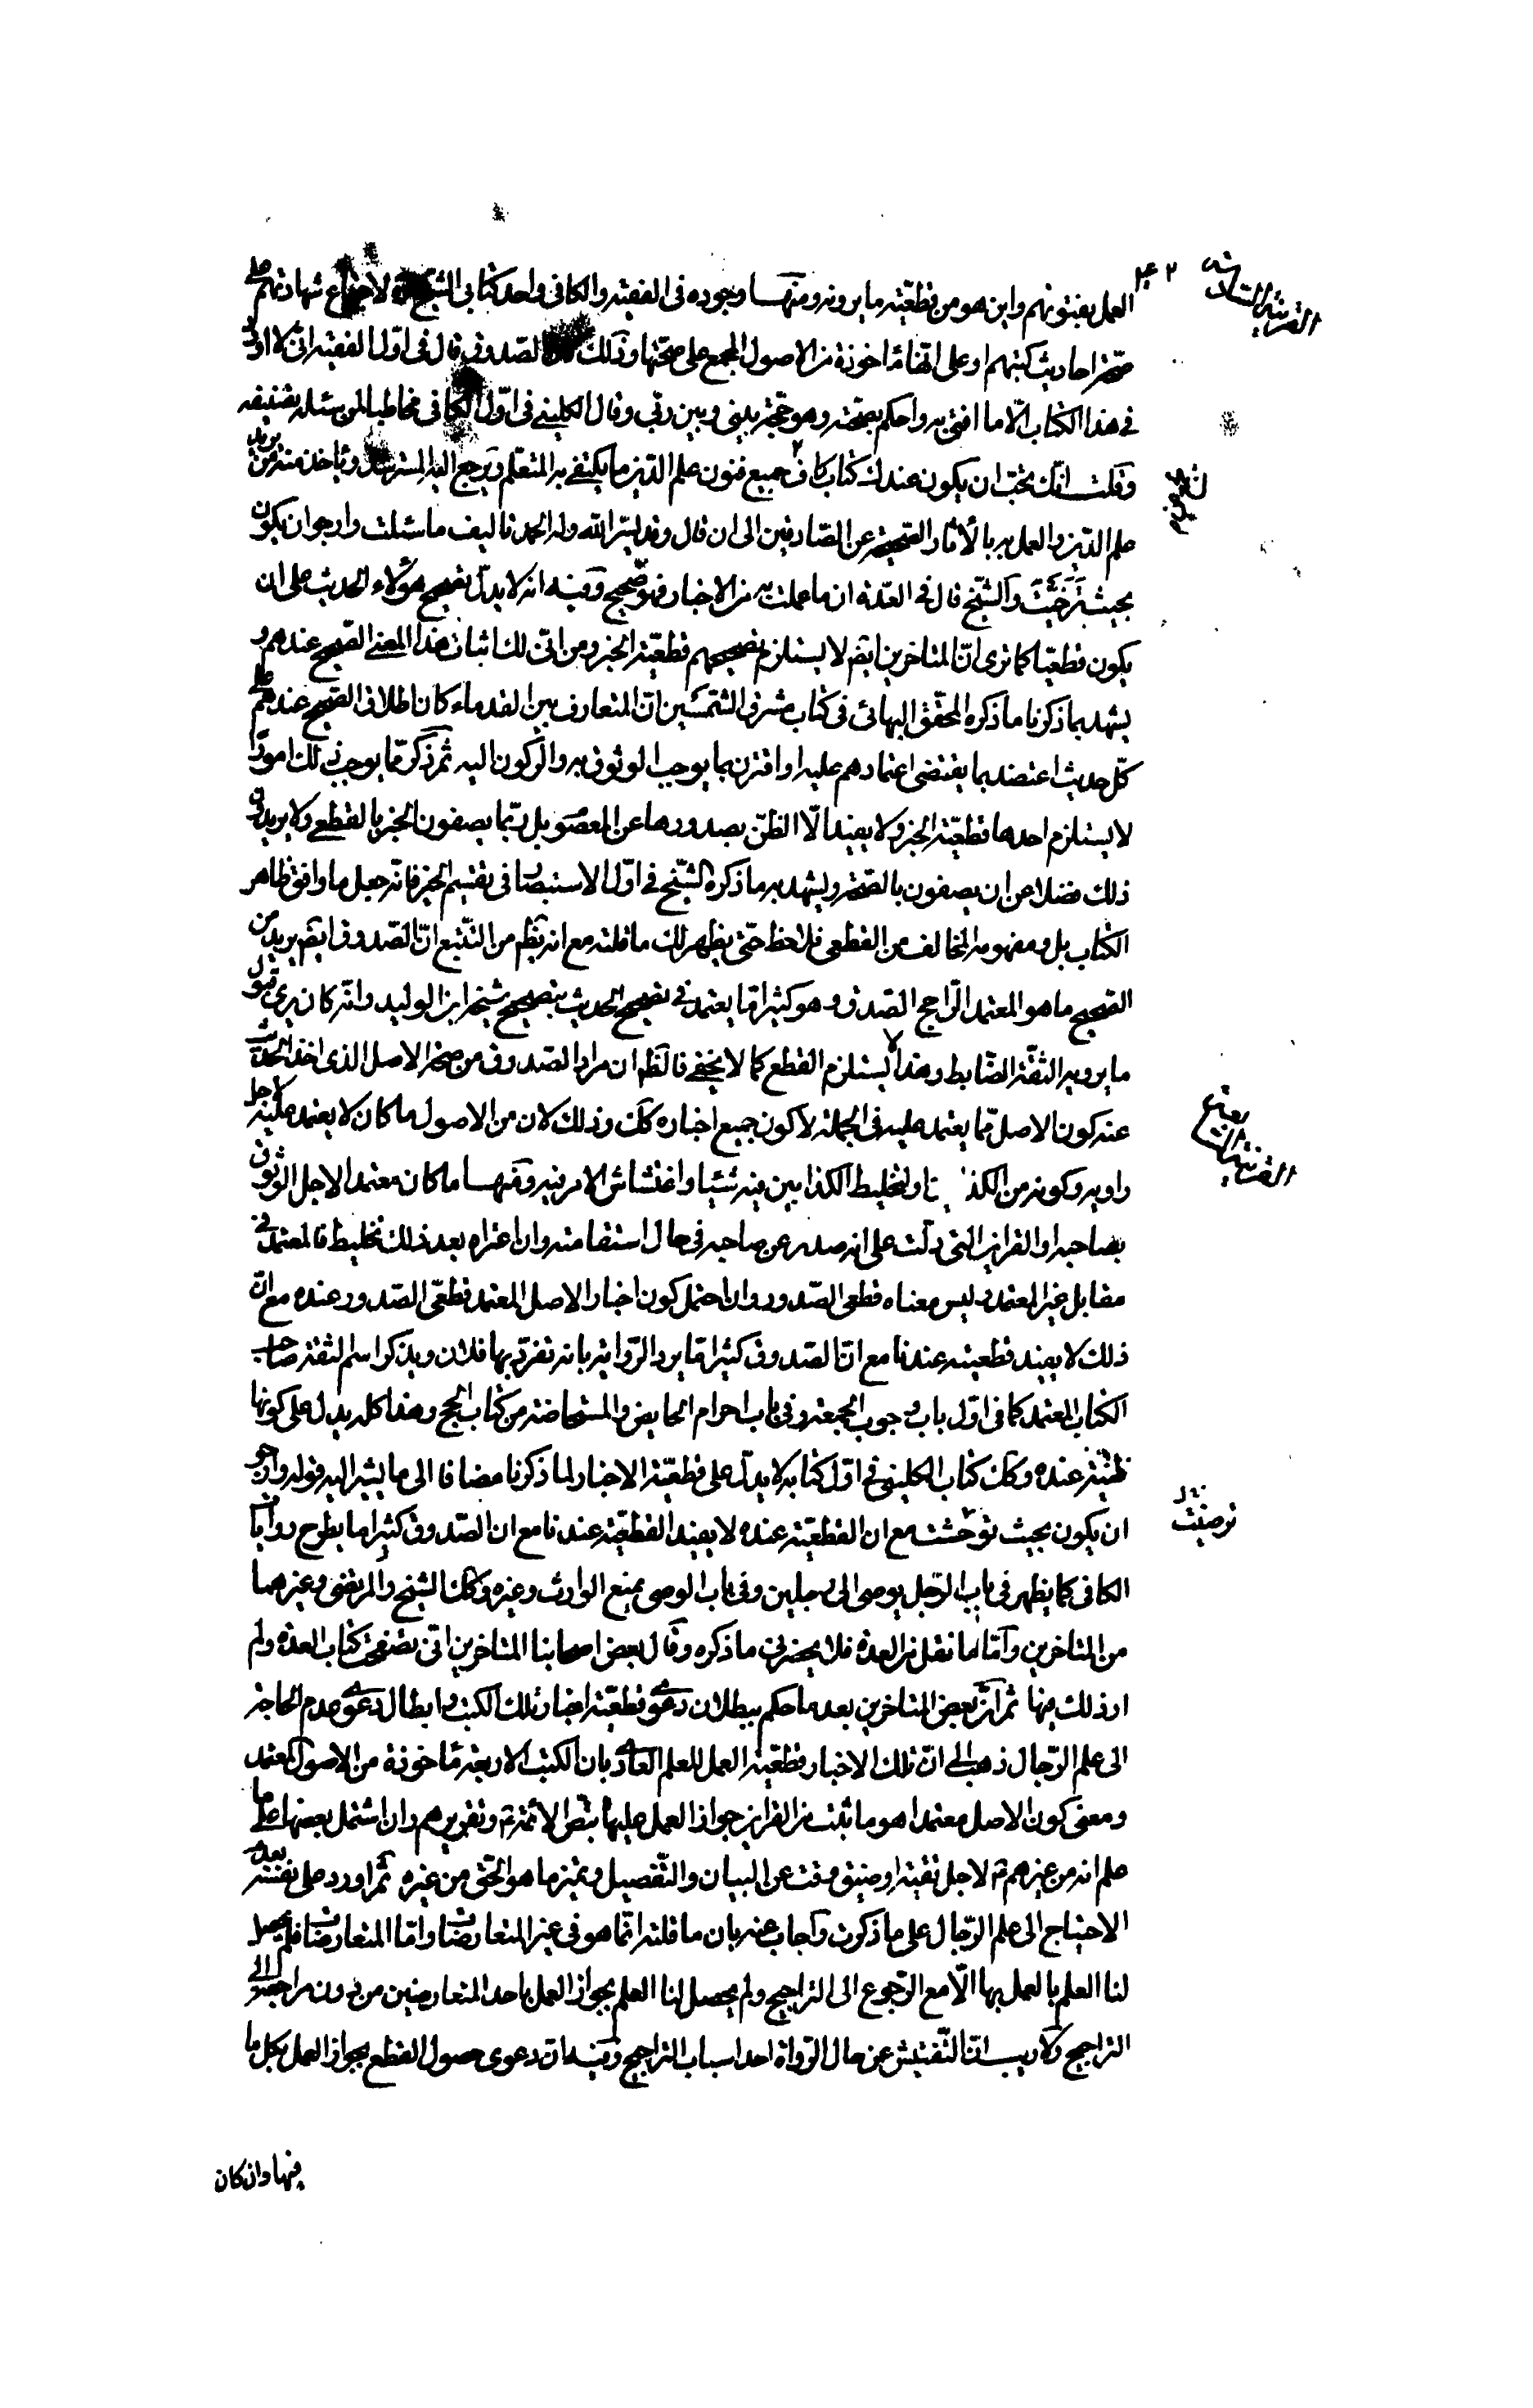 العمل بفتويهم واين هو من قطعيّة ما يروونه ومنها وجوده فى الفقيه والكافى واحد كتابى الشيخ لاجتماع شهادتهم على
صحّة احاديث كتبهم او على انّها مأخوذة من الاصول المجمع على صحّتها وذلك الصّدوق قال فى اوّل الفقيه انّى لا اورد
فى هذا الكتاب الّا ما افتى به واحكم بصحّته وهو حجّة بينى وبين ربّى وقال الكلينى فى اوّل الكافى مخاطبا لمن سئله تصنيفه
وقلت انّك تحبّ ان يكون عندك كتاب كاف جميع فنون علم الدّين ما يكتفى به المتعلّم ويرجع اليه المسترشد ويأخذ منه من يريد
علم الدّين والعمل به بالآثار الصّحيحة عن الصّادقين الى ان قال وقد يسّر الله وله الحمد تاليف ما سئلت وارجو ان يكون
بحيث توخّيت والشّيخ قال فى العدّة ان ما عملت به من الاخبار فهو صحيح وفيه انه لا يدلّ تصحيح هؤلاء الحديث على ان
يكون قطعيّا كما ترى انّ المتاخرين ايضم لا يستلزم تصحيحهم قطعيّة الخبر ومن اين لك اثبات هذا المعنى الصّحيح عندهم و
يشهد بما ذكرنا ما ذكره المحقّق البهائى فى كتاب مشرق الشّمسين انّ المتعارف بين القدماء كان اطلاق الصّحيح عندهم على
كلّ حديث اعتضد بما يقتضى اعتمادهم عليه او اقترن بما يوجب الوثوق به والرّكون اليه ثم ذكر ممّا يوجب ذلك امورا
لا يستلزم احدها قطعيّة الخبر ولا يفيد الّا الظنّ بصدورها عن المعصوم بل ربّما يصفون الخبر بالقطعى ولا يريدون
ذلك فضلا عن ان يصفون بالصّحّة ويشهد به ما ذكره الشّيخ فى اوّل الاستبصار فى تقسيم الخبر فانّه جعل ما وافق ظاهر
الكتاب بل ومفهومه المخالف من القطعى فلاحظ حتّى يظهر لك ما قلته مع انه يظهر من التّتبع انّ الصّدوق ايضم يريد من
الصّحيح ما هو المعتمد الرّاجح الصّدق وهو كثيرا ما يعتمد فى تصحيح الحديث بتصحيح شيخه ابن الوليد وانّه كان يرى قبول
ما يرويه الثقة الضّابط وهذا لا يستلزم القطع كما لا يخفى فالظّم ان مراد الصّدوق من صحّة الاصل الذى اخذ الحديث
عنه كون الاصل ممّا يعتمد عليه فى الجملة لا كون جميع اخباره كك وذلك لان من الاصول ما كان لا يعتمد عليه لاجل
راويه وكونه من الكذ ولتخليط الكذابين فيه شيئا واغتشاش الامر فيه ومنها ما كان معتمدا لاجل الوثوق
بصاحبه او القراين التى دلّت على انه صدر عن صاحبه فى حال استقامته وان اعتراه بعد ذلك تخليط فالمعتمد فى
مقابل غير المعتمد وليس معناه قطعى الصّدور وان احتمل كون اخبار الاصل المعتمد قطعى الصّدور عنده مع انّ
ذلك لا يفيد قطعيته عندنا مع انّ الصّدوق كثيرا ما يرد الرّواية بانه تفرّد بها فلان ويذكر اسم الثقة صاحب
الكتاب المعتمد كما فى اوّل باب وجوب الجمعة وفى باب احرام الحايض والمستحاضة من كتاب الحج وهذا كله يدل على كونها
ظنيّة عنده وكك كتاب الكلينى فى اوّل كتابه لا يدلّ على قطعيّة الاخبار لما ذكرنا مضافا الى ما يشير اليه قوله وارجو
ان يكون بحيث توخّيت مع ان القطعيّة عنده لا يفيد القطعيّة عندنا مع ان الصّدوق كثيرا ما يطرح روايات
الكافى كما يظهر فى باب الرّجل يوصى الى رجلين وفى باب الوصى يمنع الوارث وغيره وكك الشيخ والمرتضى وغيرهما
من المتاخرين وامّا ما نقل من العدّة فلا يحضرنى ما ذكره وقال بعض اصحابنا المتاخرين انّى تصفّحت كتاب العدّة ولم
ار ذلك فيها ثمّ انّ بعض المتاخرين بعد ما حكم ببطلان دعوى قطعيّة اخبار تلك الكتب وابطال دعوى عدم الحاجة
الى علم الرّجال ذهب الى انّ تلك الاخبار قطعيّة العمل للعلم العادى بان الكتب الاربعة مأخوذة من الاصول المعتمدة
ومعنى كون الاصل معتمدا هو ما ثبت من القراين جواز العمل عليها بنصّ الائمّة ع وتقريرهم وان اشتمل بعضها على ما
علم انه من غيرهم ع لاجل تقيّة او ضيق وقت عن البيان والتّفصيل وتميز ما هو الحقّ من غيره ثم اورد على نفسه بعدم
الاحتياج الى علم الرّجال على ما ذكرت واجاب عنه بان ما قلته انّما هو فى غير المتعارضات وامّا المتعارضات فلم يحصل
لنا العلم بالعمل بها الّا مع الرّجوع الى التراجيح ولم يحصل لنا العلم بجواز العمل باحد المتعارضين من دون مراجعة الى
التراجيح ولا ريب انّ التّفتيش عن حال الرّواة احد اسباب التراجيح وفيه انّ دعوى حصول القطع بجواز العمل بكل ما
فيها وان كان